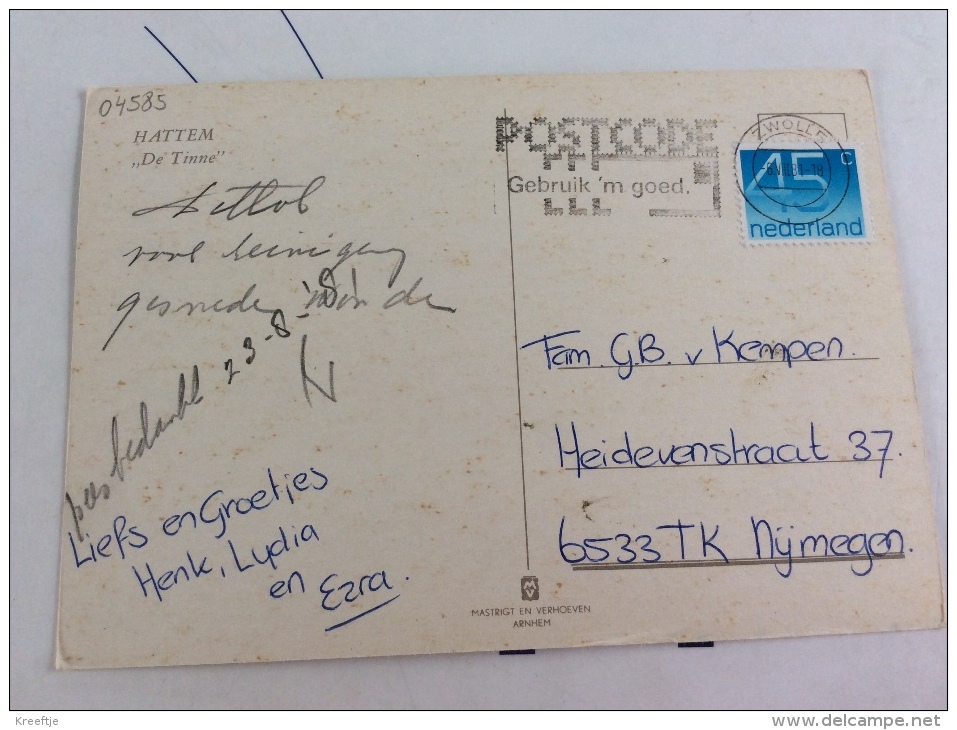 04585
HATTEM
„De Tinne"
POSTCODE
Gebruik 'm goed.
ZWOLLE
45 c
nederland
gesneden
bedankt 23-8-'81
Liefs en Groetjes
Henk, Lydia
en Ezra.
Fam. G.B. v Kempen.
Heidevenstraat 37.
6533 TK Nijmegen.
MV
MASTRIGT EN VERHOEVEN
ARNHEM
Kreeftje
delcampe.net